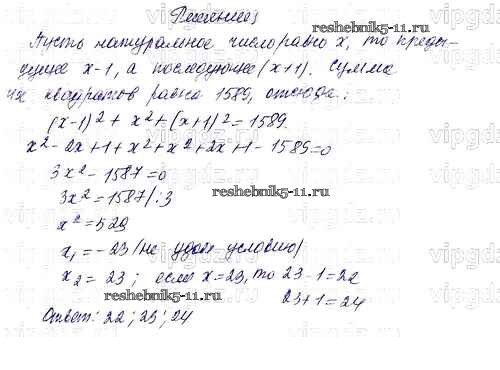 Решение;
reshebnik5-11.ru
Пусть натуральное число равно x, то преды-
дущее x-1, а последующее (x+1). Сумма
их квадратов равна 1589, отсюда:
(x-1)² + x² + (x+1)² = 1589.
x² - 2x + 1 + x² + x² + 2x + 1 - 1589 = 0
3x² - 1587 = 0
3x² = 1587 /: 3
reshebnik5-11.ru
x² = 529
x₁ = - 23 /не удов. условию/
x₂ = 23; если x = 23, то 23 - 1 = 22
reshebnik5-11.ru
23 + 1 = 24
Ответ: 22; 23; 24